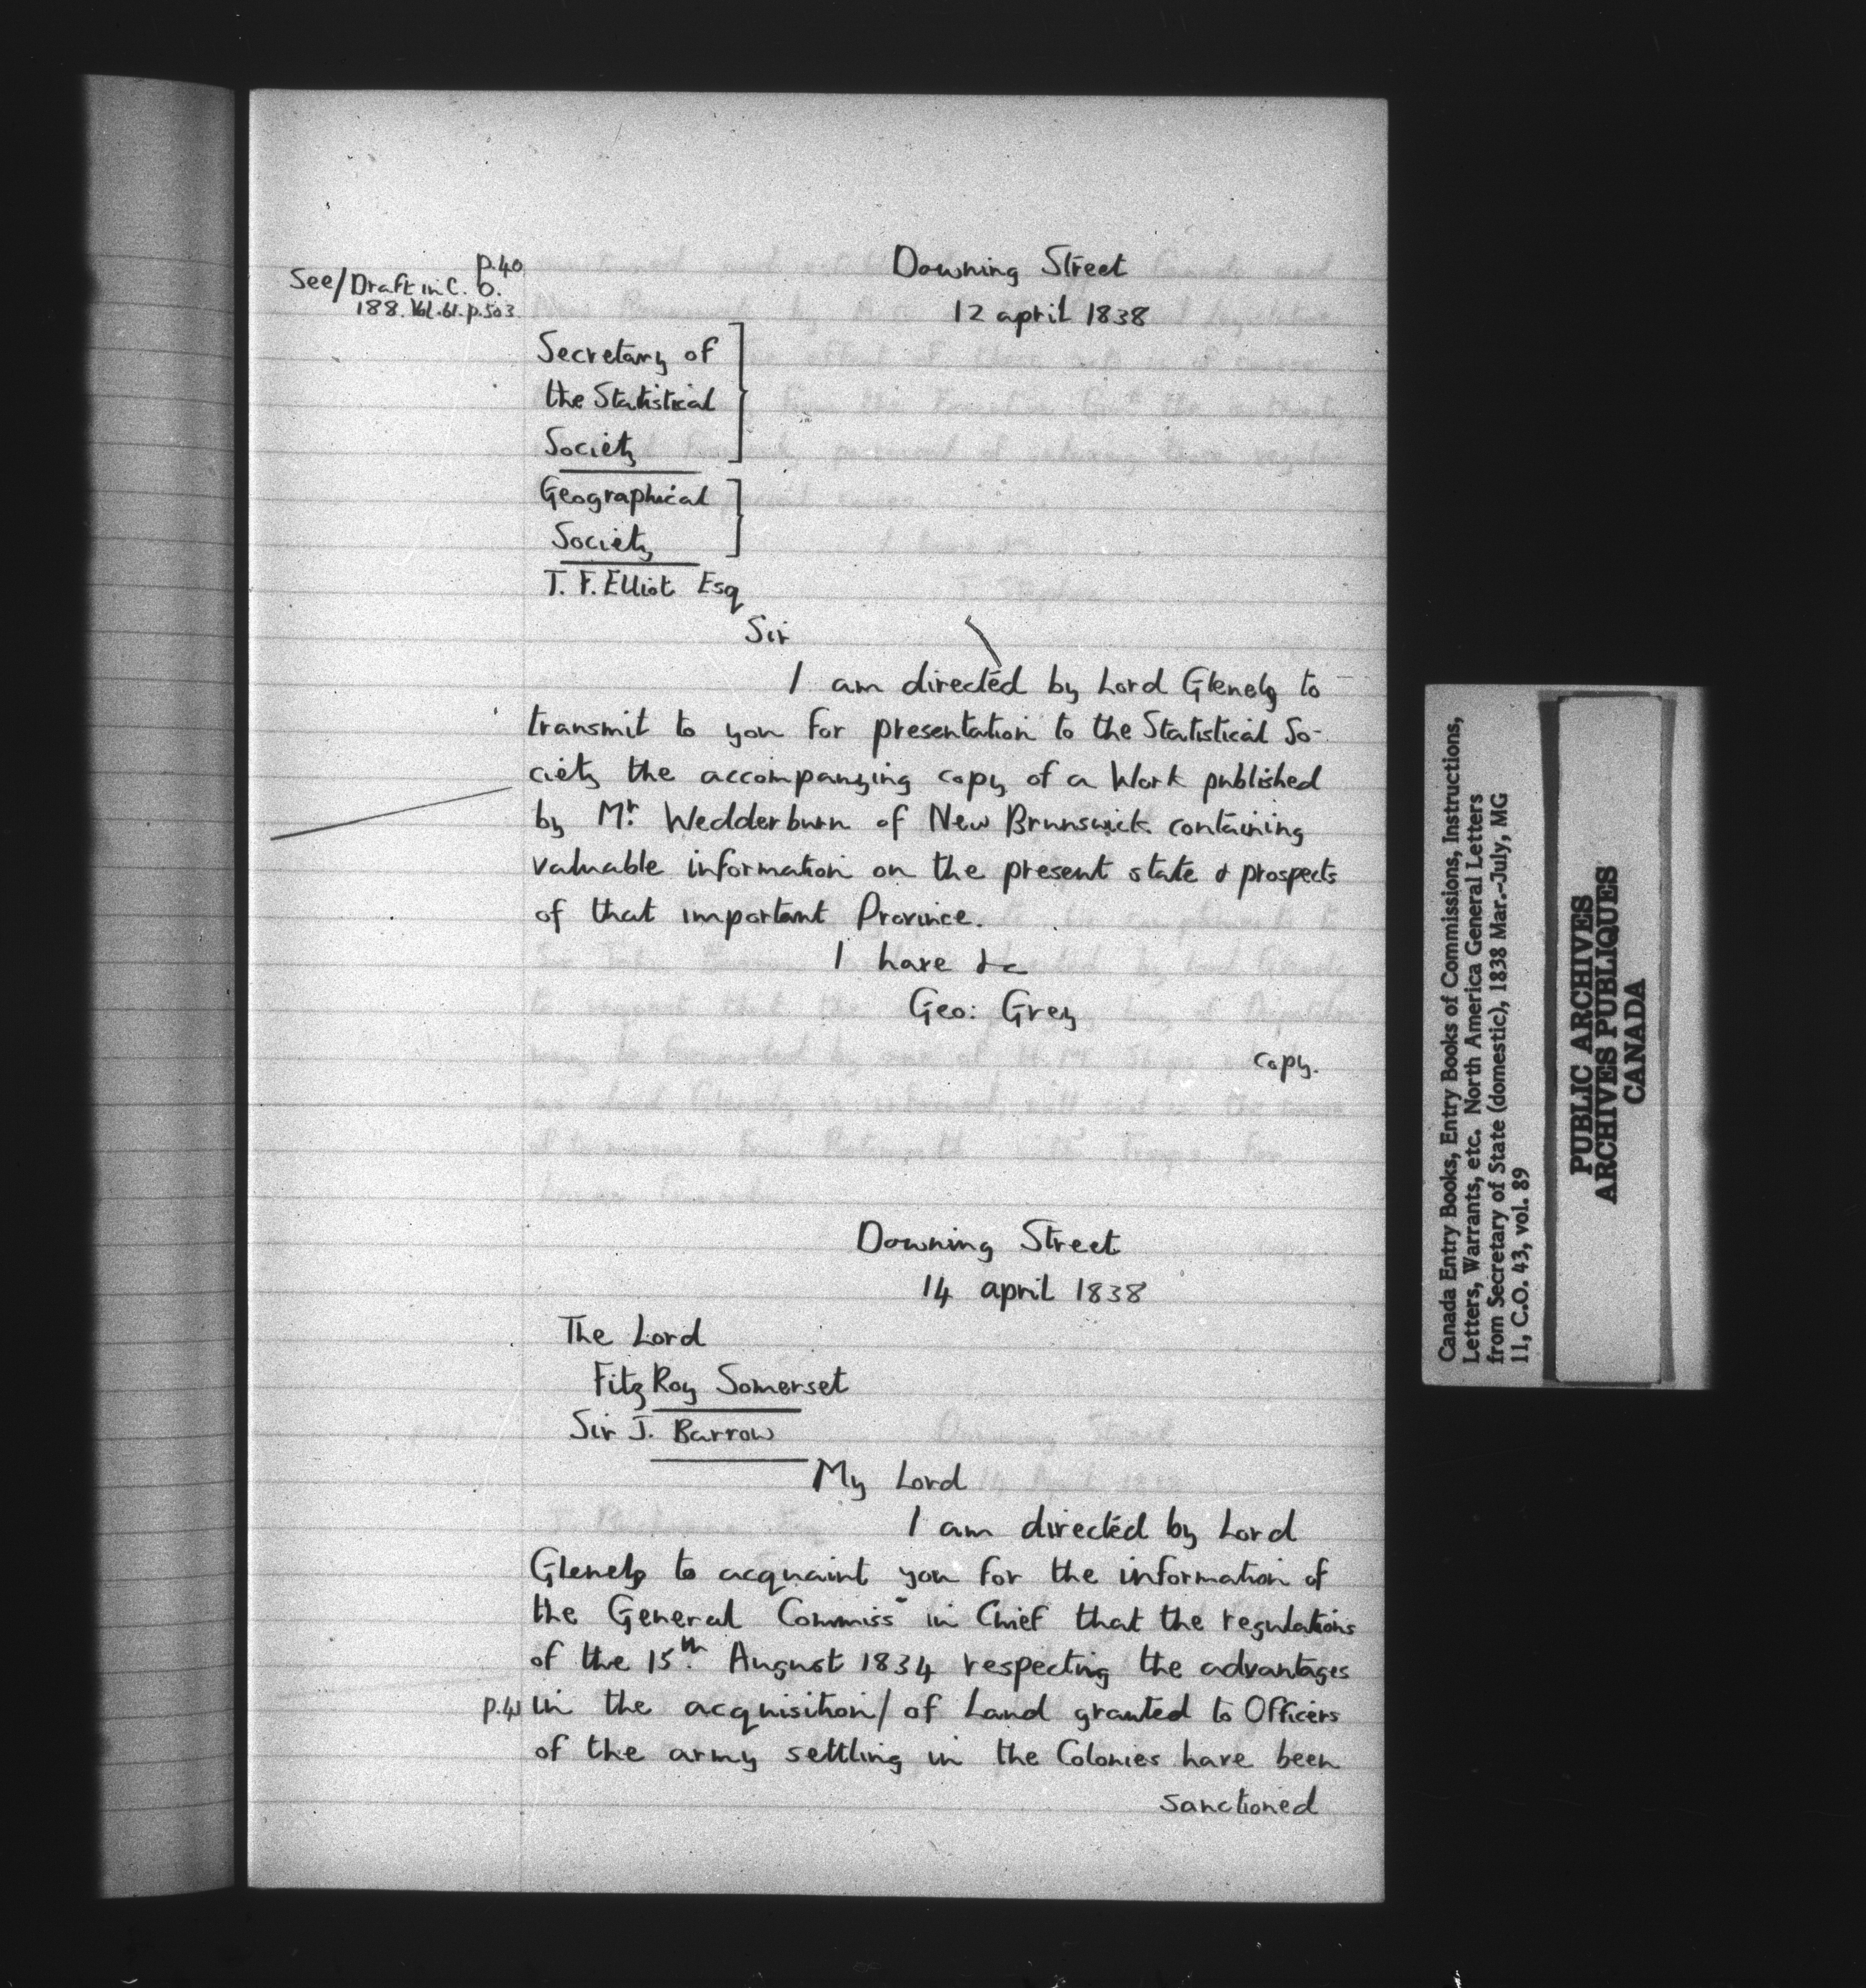 p.40
See/Draft in C.O.
188. Vol.61.p.503
Downing Street
12 april 1838
Secretary of
the Statistical
Society
Geographical
Society
T. F. Elliot Esq
Sir
I am directed by Lord Glenelg to
transmit to you for presentation to the Statistical So-
ciety the accompanying copy of a Work published
by Mr. Wedderburn of New Brunswick containing
valuable information on the present state & prospects
of that important Province.
I have &c
Geo: Grey
copy.
Downing Street
14 april 1838
The Lord
FitzRoy Somerset
Sir J. Barrow
My Lord
I am directed by Lord
Glenelg to acquaint you for the information of
the General Commiss in Chief that the regulations
of the 15th. August 1834 respecting the advantages
p.41 in the acquisition/ of Land granted to Officers
of the army settling in the Colonies have been
sanctioned
Canada Entry Books, Entry Books of Commissions, Instructions,
Letters, Warrants, etc. North America General Letters
from Secretary of State (domestic), 1838 Mar.-July, MG
11, C.O. 43, vol. 89
PUBLIC ARCHIVES
ARCHIVES PUBLIQUES
CANADA